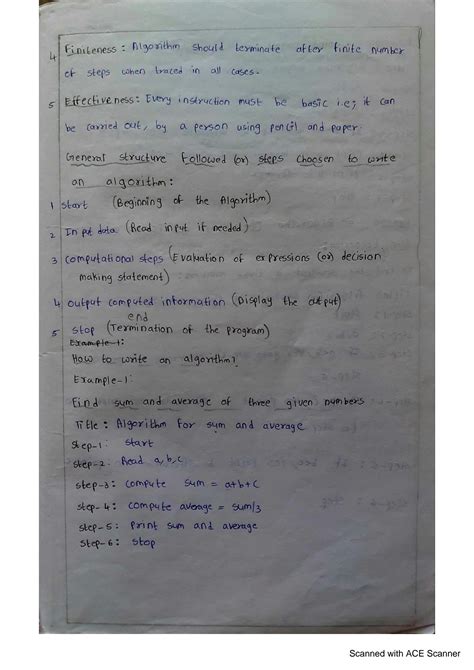 4 Finiteness : Algorithm should terminate after finite number
of steps when traced in all cases.
5 Effectiveness : Every instruction must be basic i.e; it can
be carried out, by a person using pencil and paper.
General structure followed (or) steps choosen to write
an algorithm :
1 start (Beginning of the Algorithm)
2 In put data (Read input if needed)
3 computational steps (Evaluation of expressions (or) decision
making statement)
4 output computed information (Display the output)
end
5 stop (Termination of the program)
Example-1:
How to write an algorithm?
Example-1:
Find sum and average of three given numbers
Title : Algorithm for sum and average
step-1: start
step-2: Read a,b,c
step-3: compute sum = a+b+c
step-4: compute average = sum/3
step-5: print sum and average
step-6: stop
Scanned with ACE Scanner